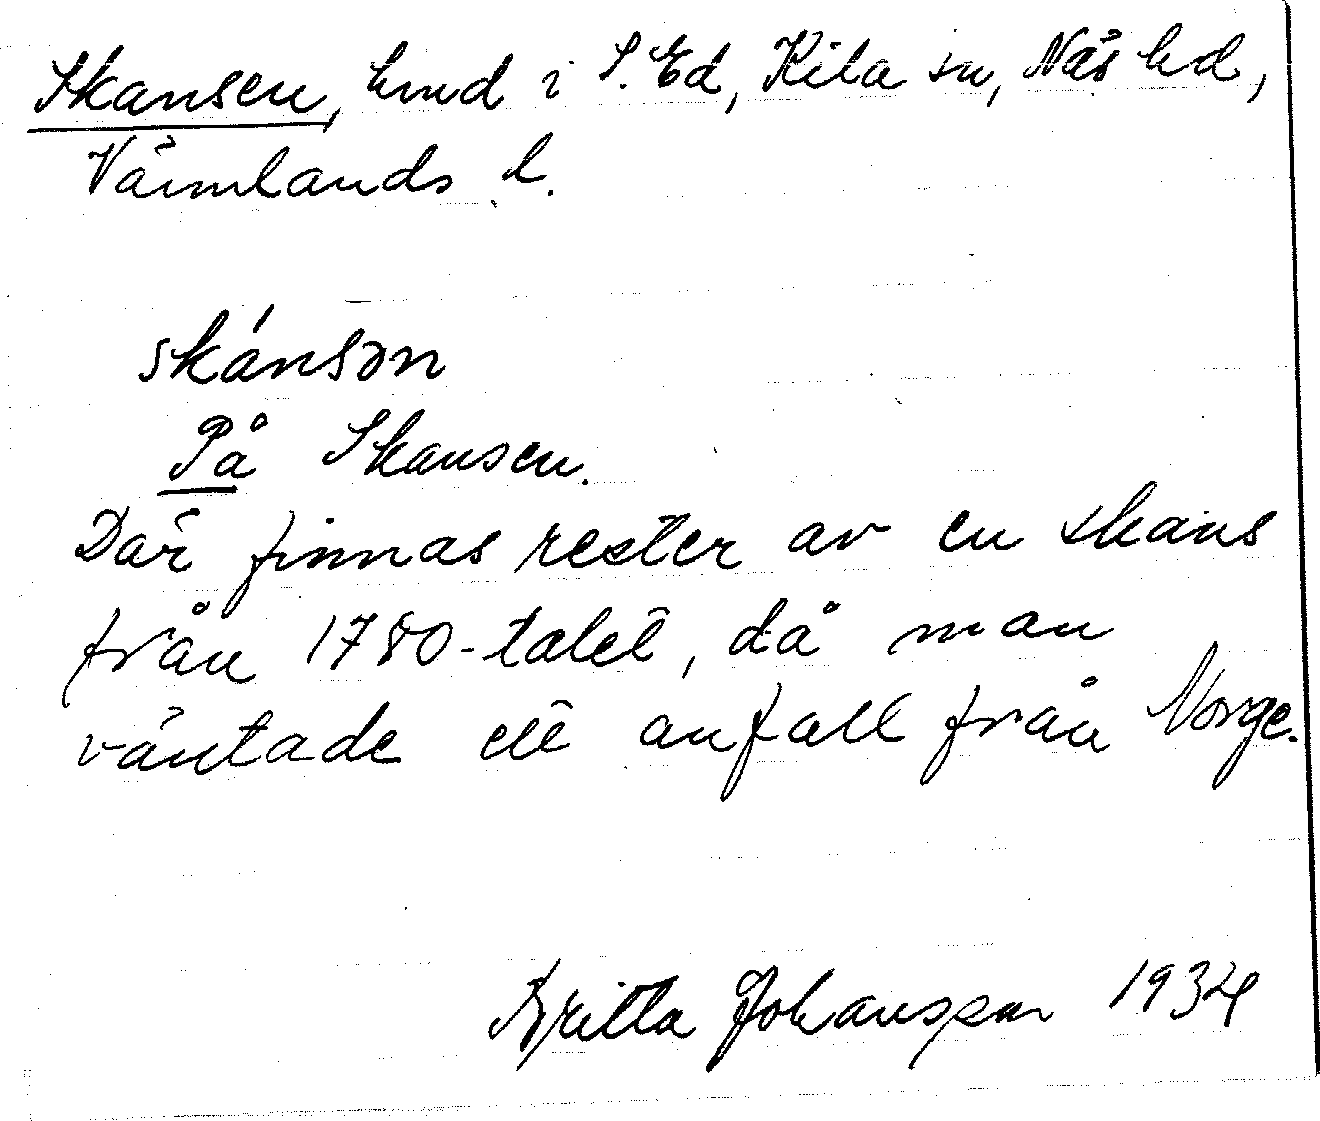 Skansen, hmd i S. Ed, Kila sn, Näs hd,
Värmlands l.
skánsən
På Skansen.
Där finnas rester av en skans
från 1780-talet, då man
väntade ett anfall från Norge.
Britta Johansson 1934